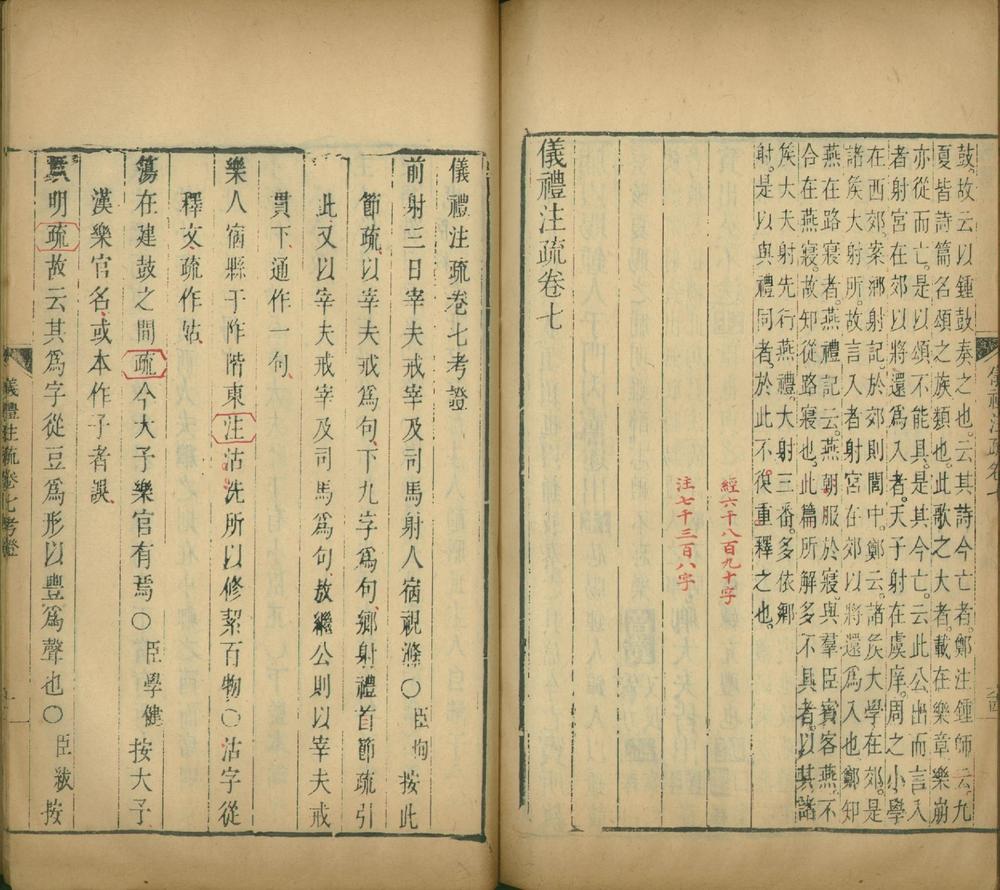 鼓。故云以鍾鼓奏之也。云其詩今亡者。鄭注鍾師云。九
夏皆詩篇名。頌之族類也。此歌之大者。載在樂章。樂崩
亦從而亡。是以頌不能具。是其今亡。云此公出而言入
者。射宮在郊。以將還爲入者。天子射在虞庠。周之小學
在西郊。案鄉射記。於郊則閭中。鄭云。諸矦大學在郊。是
諸矦大射所。故言入者。射宮在郊。以將還爲入也。鄭知
燕在路寢者。燕禮記云。燕朝服於寢。與羣臣賓客燕。不
合在燕寢。故知從路寢也。此篇所解多不具者。以其諸
矦大夫射。先行燕禮。大射三番。多依鄉
射。是以與禮同者。於此不復重釋之也。
經六千八百九十字
注七千三百八字
儀禮注疏卷七
儀禮注疏卷七考證
前射三日宰夫戒宰及司馬射人宿視滌〇臣恂按此
節疏以宰夫戒爲句下九字爲句鄉射禮首節疏引
此又以宰夫戒宰及司馬爲句敖繼公則以宰夫戒
貫下通作一句
樂人宿縣于阼階東注沽洗所以修絜百物〇沽字從
釋文疏作姑
簜在建鼓之間疏今大子樂官有焉〇臣學健按大子
漢樂官名或本作子者誤
明疏故云其爲字從豆爲形以豐爲聲也〇臣紱按
儀禮注疏卷七考證